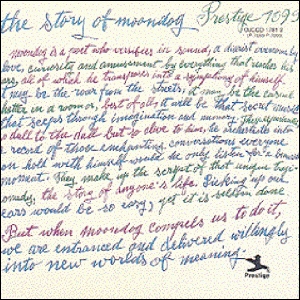 the story of moondog Prestige 1099
OJCCD 1741 2
(P-7099)
moondog is a poet who versifies in sound, a diarist overcome by
love, curiosity and amusement by everything that reaches his
ears, all of which he transposes into a symphony of himself.
it may be the roar from the streets, it may be the casual
chatter in a woman, best of all, it will be that secret music
that seeps through imagination and memory. The
call to the doll but so alive to him, he orchestrates into
a record of those enchanting conversations everyone
can hold with himself would he only listen for a
moment. They make up the script of that unique tragi
comedy, the story of anyone's life. Picking up one's
ears would be so easy, yet it is seldom done.
But when moondog compels us to do it,
we are entranced and delivered willingly
into new worlds of meaning.
Prestige